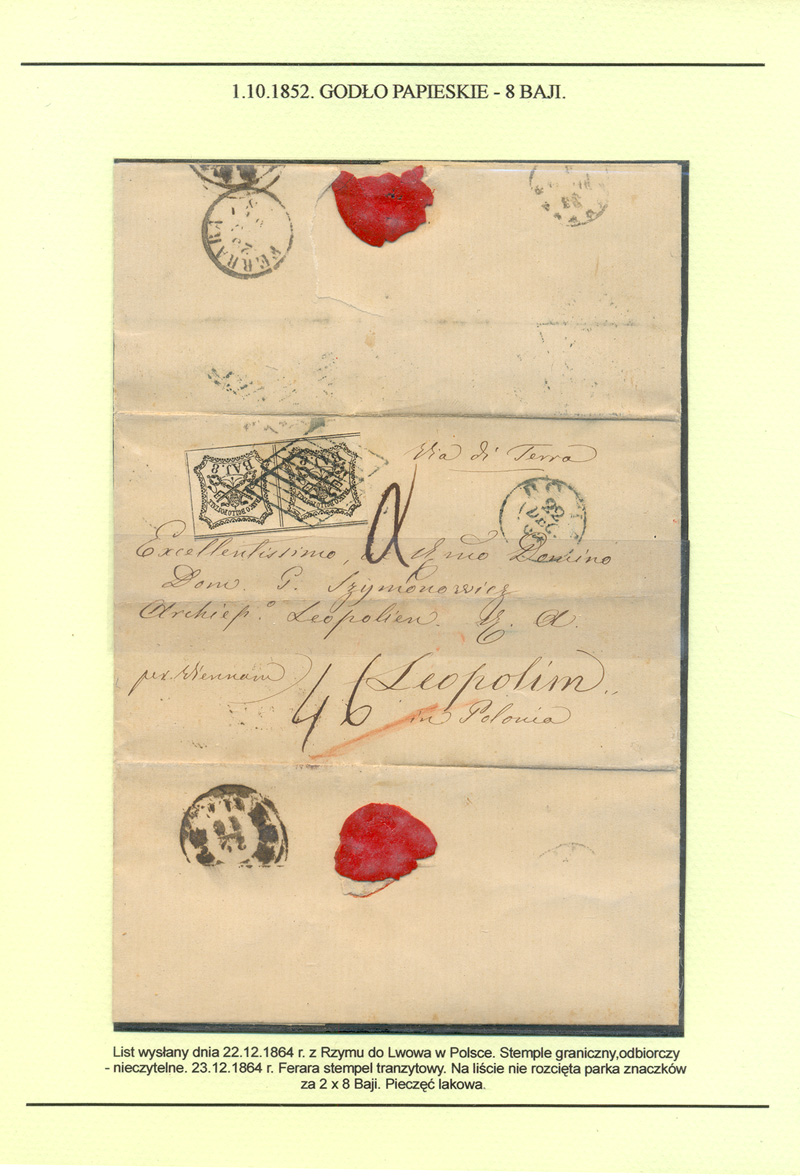 1.10.1852. GODŁO PAPIESKIE - 8 BAJI.
FERRARA
BAJ. 8
Via di Terra
22
DEC
Excellentissimo, a Rmo Domino
Dom. G. Szymonowicz
Archiep.o Leopolien. R. A.
per Viennam
46
Leopolim
in Polonia
List wysłany dnia 22.12.1864 r. z Rzymu do Lwowa w Polsce. Stemple graniczny,odbiorczy
- nieczytelne. 23.12.1864 r. Ferara stempel tranzytowy. Na liście nie rozcięta parka znaczków
za 2 x 8 Baji. Pieczęć lakowa.